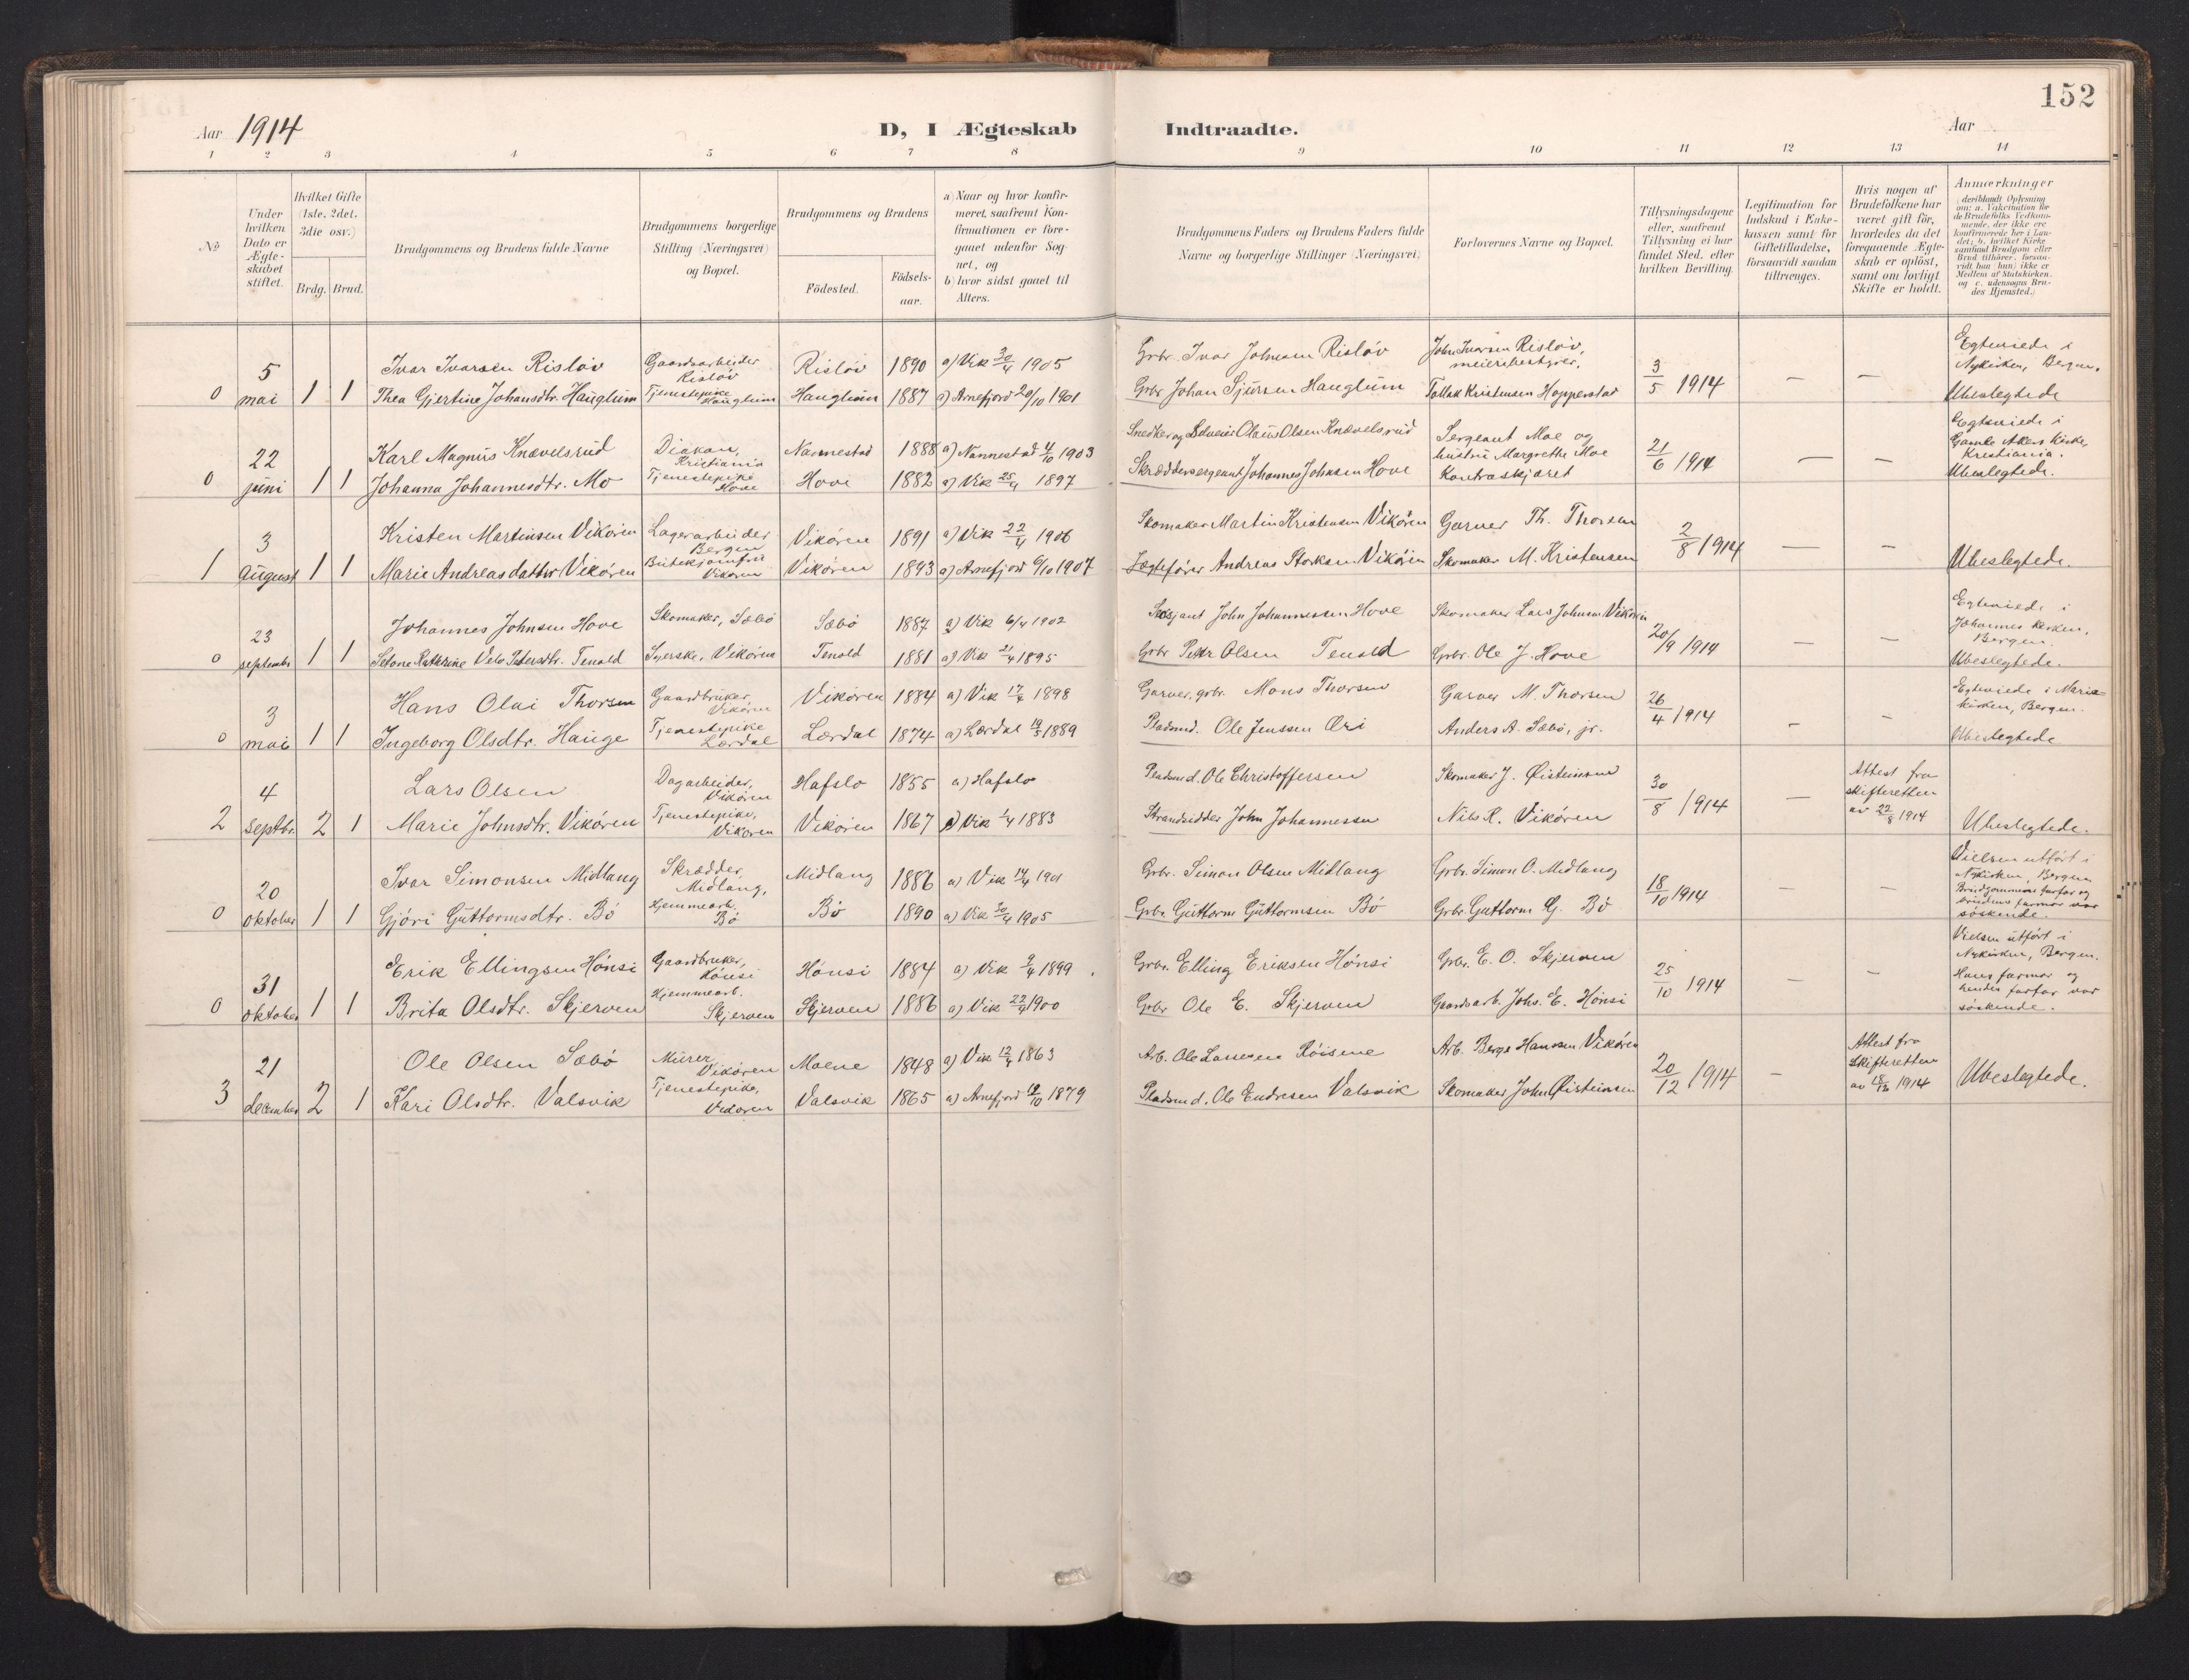 152
Aar 1914
D, I Ægteskab Indtraadte.
Aar
1 2 3 4 5 6 7 8 9 10 11 12 13 14
No
Under hvilken Dato er Ægteskabet stiftet.
Hvilket Gifte (1ste, 2det, 3die osv.)
Brdg. Brud.
Brudgommens og Brudens fulde Navne
Brudgommens borgerlige Stilling (Næringsvei) og Bopæl.
Brudgommens og Brudens
Födested.
Födselsaar.
a) Naar og hvor konfirmeret, saafremt Konfirmationen er foregaaet udenfor Sognet, og
b) hvor sidst gaaet til Alters.
Brudgommens Faders og Brudens Faders fulde Navne og borgerlige Stillinger (Næringsvei)
Forlovernes Navne og Bopæl.
Tillysningsdagene eller, saafremt Tillysning ei har fundet Sted, efter hvilken Bevilling.
Legitimation for Indskud i Enkekassen samt för Giftetilladelse, forsaavidt saadan tiltrænges.
Hvis nogen af Brudefolkene har været gift för, hvorledes da det foregaaende Ægteskab er oplöst, samt om lovligt Skifte er holdt.
Anmærkninger
(deriblandt Oplysning om: a. Vakcination for de Brudefolks Vedkommende, der ikke ere konfirmerede her i Landet; b. hvilket Kirkesamfund Brudgom eller Brud tilhörer, forsaavidt han (hun) ikke er Medlem af Statskirken, og c. udensogns Brudes Hjemsted.)
5 Ivar Ivarsen Risløv Gaardsarbeider Risløv Risløv 1890 a) Vik 30/4 1905 Grbr. Ivar Johnsen Risløv John Ivarsen Risløv, meieribestyrer, 3/5 1914 — — Egteviede i Nykirken, Bergen.
0 mai 1 1 Thea Gjertine Johansdtr. Hauglum Tjenestepike Hauglum Hauglum 1887 a) Arnefjord 20/10 1901 Grbr. Johan Sjursen Hauglum Tollak Kristensen Hopperstad Ubeslegtede
22 Karl Magnus Knævelsrud Diakon, Kristiania Nannestad 1888 a) Nannestad 4/10 1903 Snedker og Olaus Olsen Knævelsrud Sergeant Moe og hustru Margrethe Moe Kontraskjæret 21/6 1914 — — Egteviede i Gamle Akers kirke, Kristiania.
0 juni 1 1 Johanna Johannesdtr. Mo Tjenestepike Hove Hove 1882 a) Vik 25/4 1897 Skræddersergeant Johannes Johnsen Hove Ubeslegtede.
3 Kristen Martinsen Vikøren Lagerarbeider Bergen Vikøren 1891 a) Vik 22/4 1906 Skomaker Martin Kristensen Vikøren Garver Th. Thorsen 2/8 1914 — —
1 August 1 1 Marie Andreasdatter Vikøren Butikjomfru Vikøren Vikøren 1893 a) Arnefjord 6/10 1907 Jægtefører Andreas Storksen Vikøren Skomaker M. Kristensen Ubeslegtede.
23 Johannes Johnsen Hove Skomaker, Sæbø Sæbø 1887 a) Vik 6/4 1902 Sersjant John Johannessen Hove Skomaker Lars Johnsen Vikøren 20/9 1914 — — Egteviede i Johannes kirken, Bergen.
0 september 1 1 Setone Kathrine Petersdtr. Tenold Syerske, Vikøren Tenold 1881 a) Vik 21/4 1895 Grbr Peter Olsen Tenold Grbr. Ole J. Hove Ubeslegtede.
3 Hans Olai Thorsen Gaardbruker, Vikøren Vikøren 1884 a) Vik 17/4 1898 Garver, grbr. Mons Thorsen Garver M. Thorsen 26/4 1914 — — Egteviede i Mariakirken, Bergen.
0 mai 1 1 Ingeborg Olsdtr. Hauge Tjenestepike Lærdal Lærdal 1874 a) Lærdal 19/5 1889 Pladsmd. Ole Jenssen Øri Anders A. Sæbø, jr. Ubeslegtede
4 Lars Olsen Dagarbeider, Vikøren Hafslo 1855 a) Hafslo Pladsmd. Ole Christoffersen Skomaker J. Øisteinsen 30/8 1914 — Attest fra skifteretten av 22/8 1914
2 Septbr. 2 1 Marie Johnsdtr. Vikøren Tjenestepike, Vikøren Vikøren 1867 a) Vik 1/4 1883 Strandsidder John Johannessen Nils R. Vikøren Ubeslegtede.
20 Ivar Simonsen Midlang Skrædder, Midlang, Midlang 1886 a) Vik 14/4 1901 Grbr. Simon Olsen Midlang Grbr. Simon O. Midlang 18/10 1914 — — Vielsen utført i Nykirken, Bergen
0 oktober 1 1 Gjøri Guttormsdtr. Bø Hjemmearb. Bø Bø 1890 a) Vik 30/4 1905 Grbr. Guttorm Guttormsen Bø Grbr. Guttorm G. Bø Brudgommens farfar og brudens farmor var søskende.
31 Erik Ellingsen Hønsi Gaardbruker, Hønsi Hønsi 1884 a) Vik 9/4 1899 Grbr. Elling Eriksen Hønsi Grbr. E. O. Skjerven 25/10 1914 — — Vielsen utført i Nykirken, Bergen.
0 oktober 1 1 Brita Olsdtr. Skjerven Hjemmearb. Skjerven Skjerven 1886 a) Vik 22/4 1900 Grbr Ole E. Skjerven Gaardsarb. Johs. E. Hønsi Hans farmor og hendes farfar var søskende.
21 Ole Olsen Sæbø Murer, Vikøren Moene 1848 a) Vik 12/4 1863 Arb. Ole Larssen Røisene Arb. Berge Hanssen Vikøren 20/12 1914 — Attest fra Skifteretten av 18/12 1914 Ubeslegtede.
3 december 2 1 Kari Olsdtr. Valsvik Tjenestepike, Vikøren Valsvik 1865 a) Arnefjord 19/10 1879 Pladsmd. Ole Endresen Valsvik Skomaker John Øisteinsen